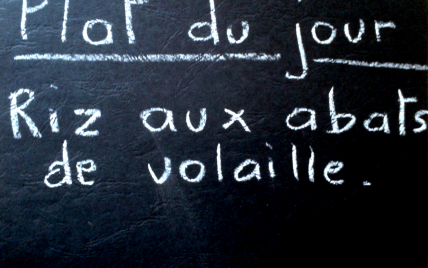 Plat du jour
Riz aux abats
de volaille.